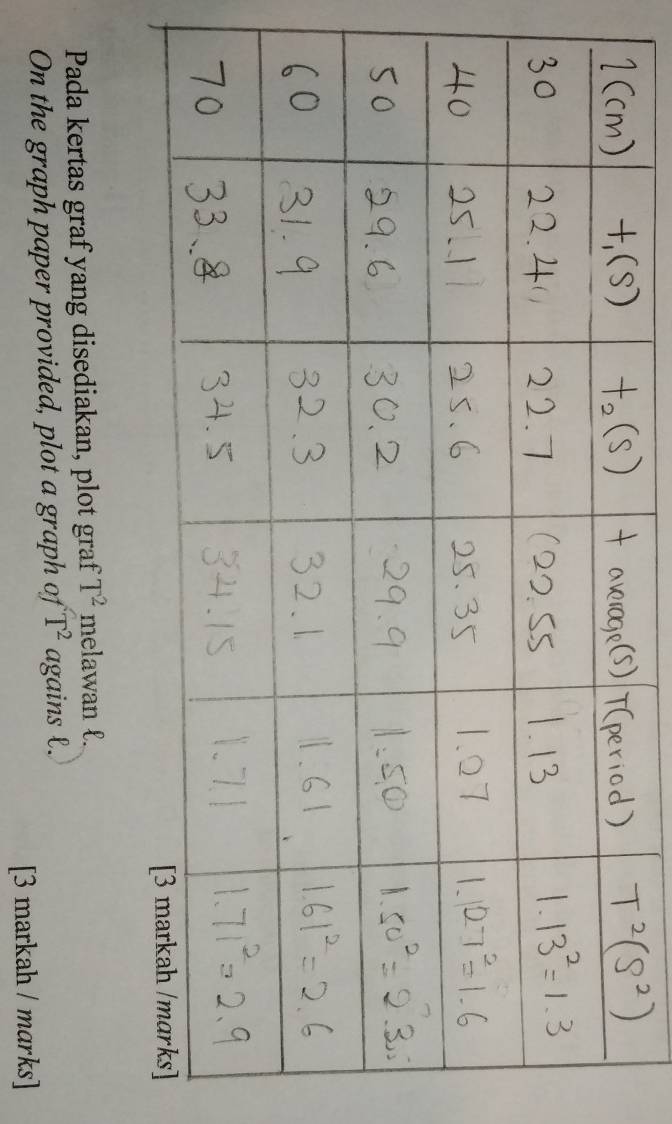 l(cm) t₁(s) t₂(s) t average(s) T(period) T²(s²)
30 22.4 22.7 (22.55 1.13 1.13² = 1.3
40 25.1 25.6 25.35 1.27 1.27² = 1.6
50 29.6 30.2 29.9 1.50 1.50² = 2.3
60 31.9 32.3 32.1 1.61 1.61² = 2.6
70 33.8 34.5 34.15 1.71 1.71² = 2.9
[3 markah /marks]
Pada kertas graf yang disediakan, plot graf T² melawan ℓ.
On the graph paper provided, plot a graph of T² agains ℓ.
[3 markah / marks]